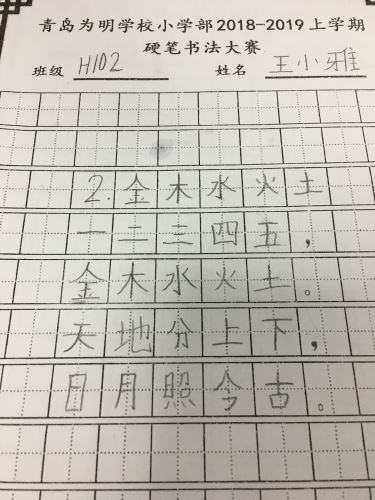 青岛为明学校小学部2018-2019上学期
硬笔书法大赛
班级 H102 姓名 王小雅
2.金木水火土
一二三四五，
金木水火土。
天地分上下，
日月照今古。